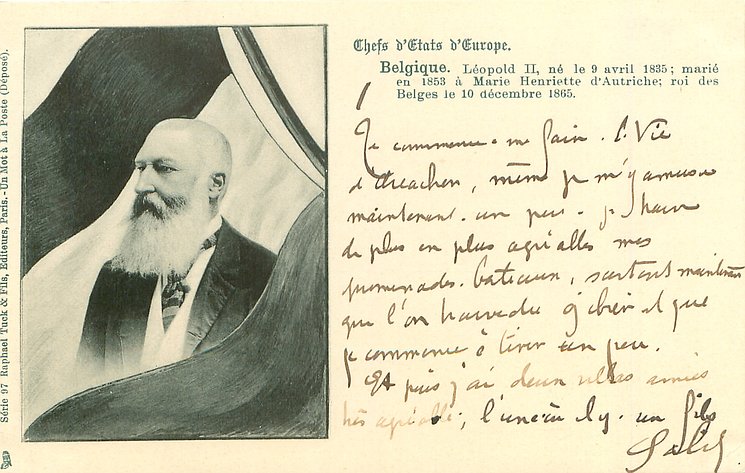 Chefs d'États d'Europe.
Belgique. Léopold II, né le 9 avril 1835; marié
en 1853 à Marie Henriette d'Autriche; roi des
Belges le 10 décembre 1865.
Je commence a me faire à la Vie
d'Arcachon, même je m'y amuse
maintenant un peu. je trouve
de plus en plus agréables mes
promenades bateaux, surtout maintenant
que l'on trouve du gibier et que
je commence à tirer un peu.
Et puis j'ai deux
très; il y a un fils
Série 97 Raphael Tuck & Fils, Editeurs, Paris. - Un Mot à La Poste (Déposé).